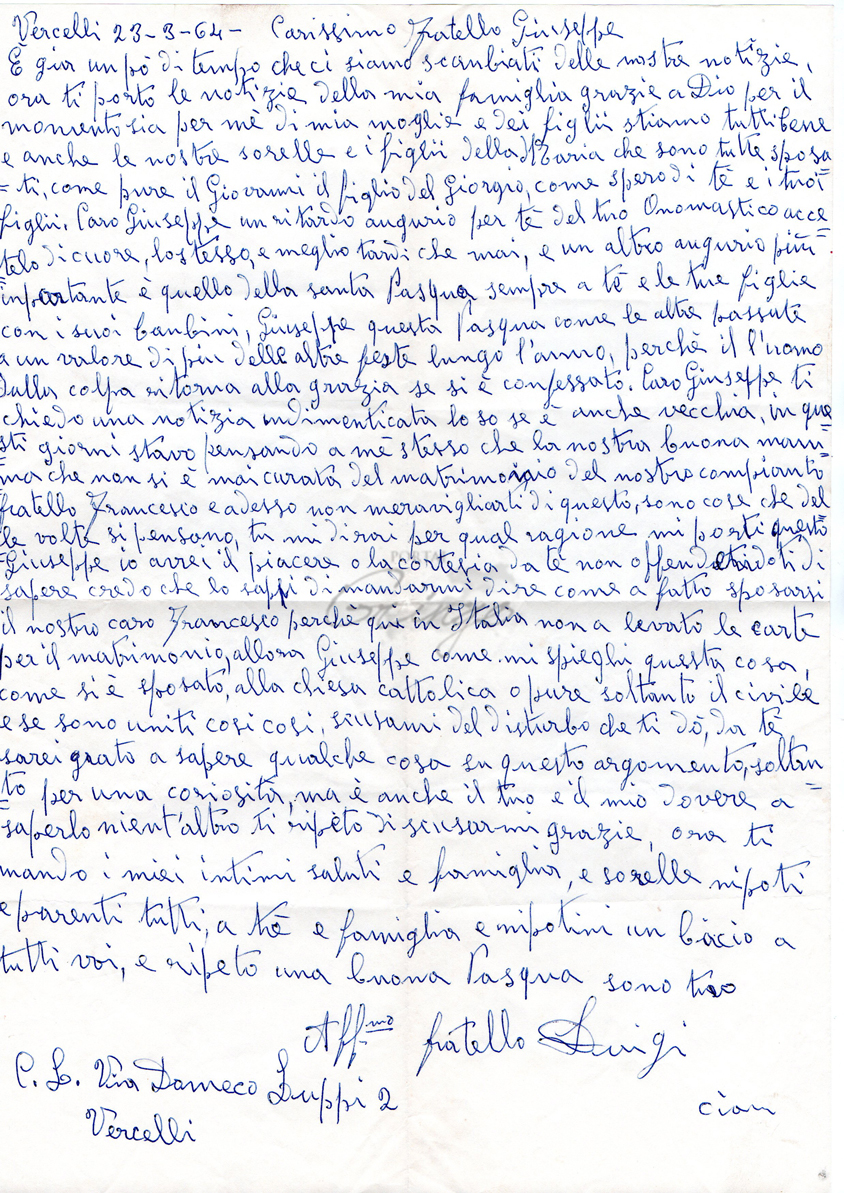 Vercelli 23-3-64- Carissimo Fratello Giuseppe
È gia un pò di tempo che ci siamo scanbiati delle nostre notizie,
ora ti porto le notizie della mia famiglia grazie a Dio per il
momento sia per mè di mia moglie e dei figlii stiamo tutti bene
e anche le nostre sorelle e i figlii della Maria che sono tutte sposa
=ti, come pure il Giovanni il figlio del Giorgio, come spero di tè e i tuoi
figlii. Caro Giuseppe un ritardo augurio per tè del tuo Onomastico acce=
telo di cuore, lo stesso, e meglio tardi che mai, e un altro augurio più=
=inportante è quello della santa Pasqua sempre a tè e le tue figlie
con i suoi banbini, Giuseppe questa Pasqua come le altre passate
a un valore di piu delle altre feste lungo l'anno, perchè il l'uomo
dalla colpa ritorna alla grazia se si è confessato. Caro Giuseppe ti
chiedo una notizia indimenticata lo so se è anche vecchia, in que=
sti giorni stavo pensando a mè stesso che la nostra buona mam=
ma che non si è mai curata del matrimonio del nostro compianto
fratello Francesco e adesso non meravigliarti di questo, sono cose che del
le volte si pensano, tu mi dirai per qual ragione mi porti questo
=Giuseppe io avrei il piacere o la cortesia da tè non offendendoti di
sapere credo che lo sappi di mandarmi dire come a fatto sposarsi
il nostro caro Francesco perchè qui in Italia non a levato le carte
per il matrimonio, allora Giuseppe come mi spieghi questa cosa,
come si è sposato, alla chiesa cattolica o pure soltanto il civile
e se sono uniti cosi cosi, scusami del disturbo che ti dò, da tè
sarei grato a sapere qualche cosa su questo argomento, soltan
to per una coriosità, ma è anche il tuo e il mio dovere a=
=saperlo nient'altro ti ripèto di scusarmi grazie, ora ti
mando i miei intimi saluti e famiglia, e sorelle nipoti
e parenti tutti, a tè e famiglia e nipotini un bàcio a
tutti voi, e ripeto una buona Pasqua sono tuo
Aff.mo fratello Luigi
C. L. Via Domeco Luppi 2
Vercelli
ciau